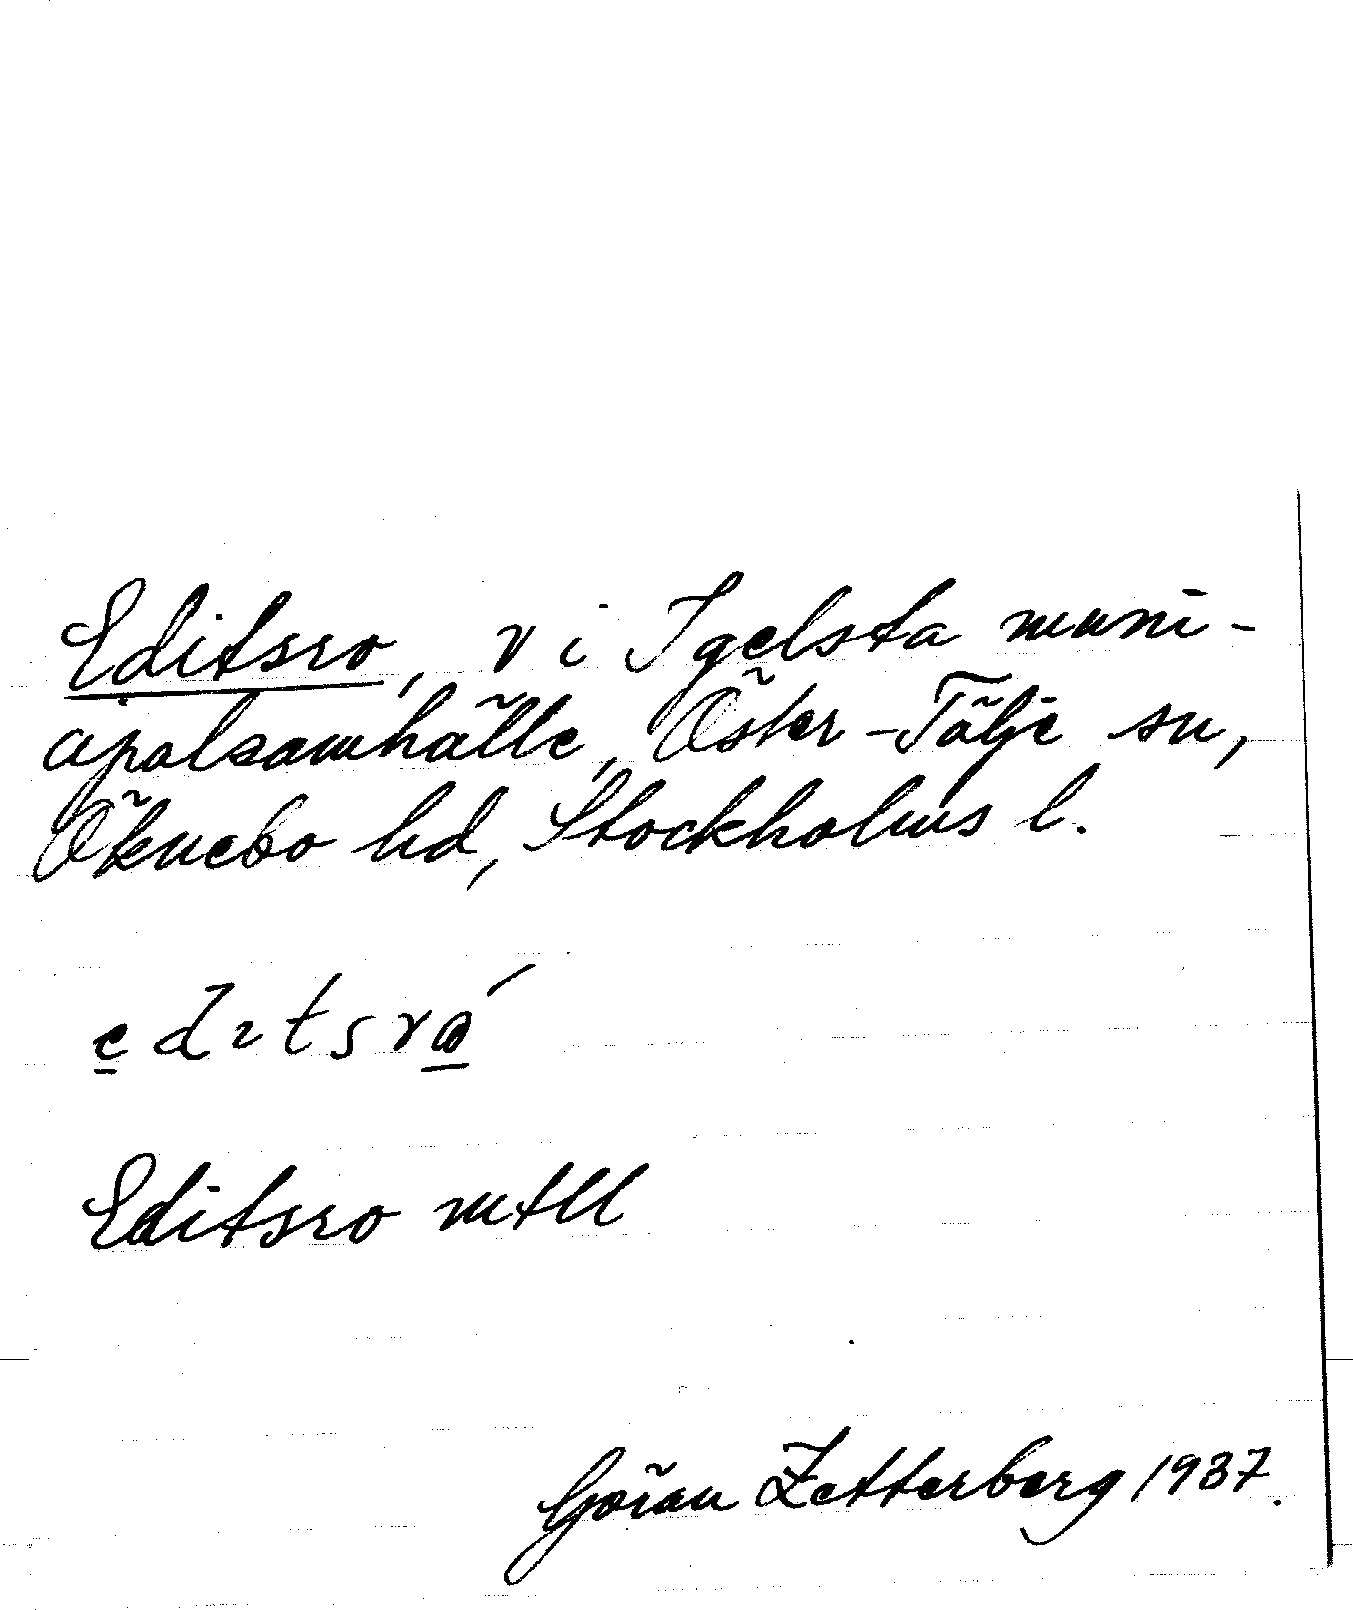 Editsro, v i Igelsta muni-
cipalsamhälle, Öster-Tälje sn,
Öknebo hd, Stockholms l.
Editsro mtll
Göran Zetterberg 1937.